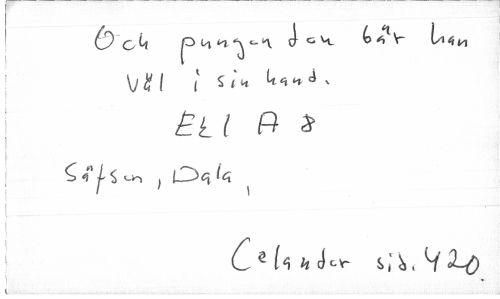 Och pungen den bär han
väl i sin hand.
Ek 1 A 8
Säfsen, Dala,
Celander sid. 420.